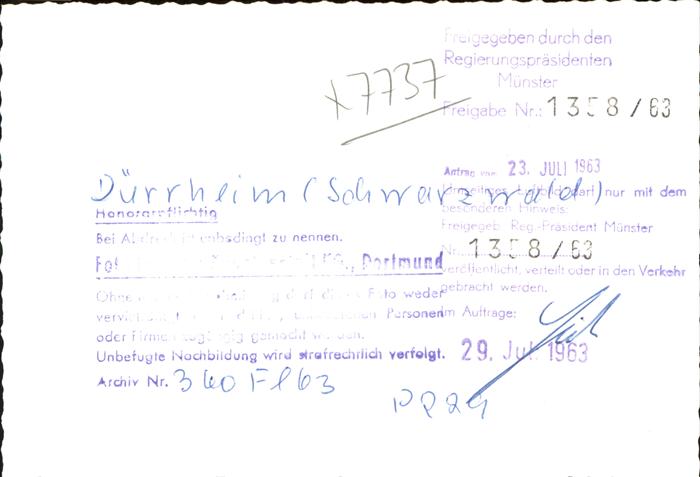 Freigegeben durch den
Regierungspräsidenten
Münster
Freigabe Nr.: 1358/63
x7737
Antrag vom 23. JULI 1963
Dürrheim (Schwarzwald)
nur mit dem
besonderen Hinweis:
Honorarpflichtig
Freigegeb Reg.-Präsident Münster
Bei unbedingt zu nennen.
Nr. 1358/63
Dortmund
veröffentlicht, verteilt oder in den Verkehr
gebracht werden.
Ohne Foto weder
Personen
Im Auftrage:
oder Firmen zugängig gemacht werden.
Unbefugte Nachbildung wird strafrechtlich verfolgt.
29. Juli 1963
Archiv Nr. 340 Fl 63